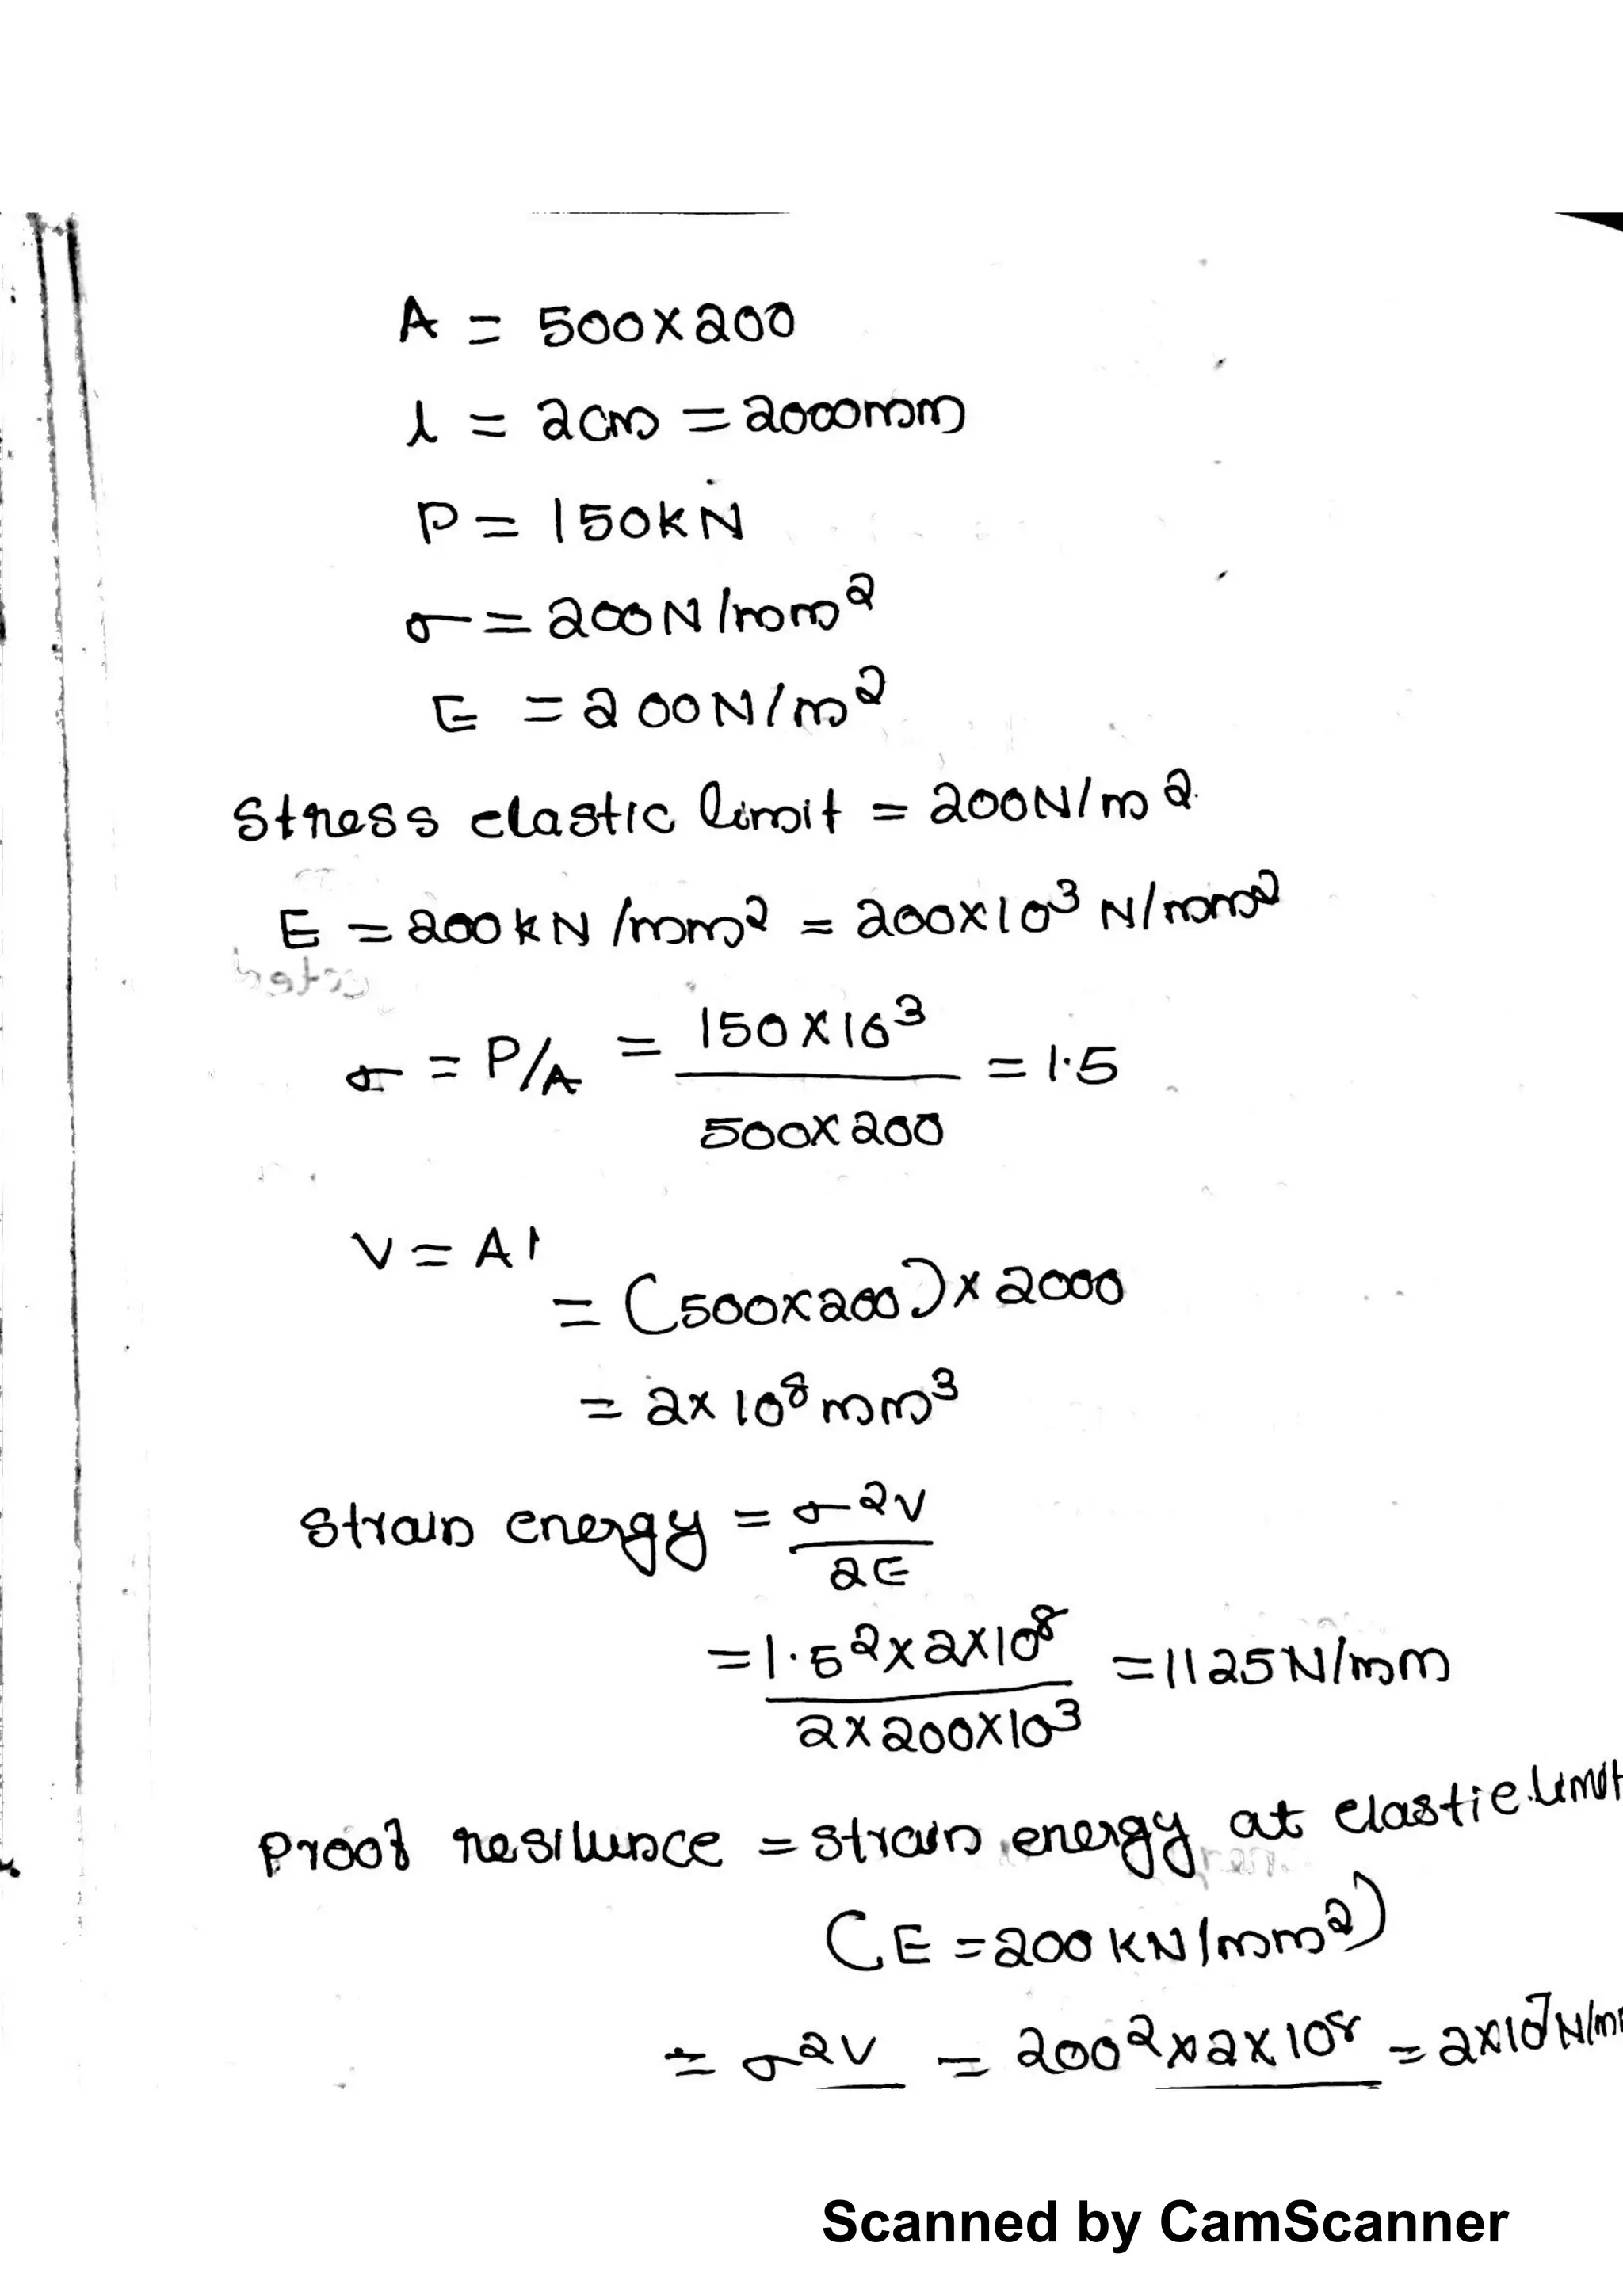 A = 500×200
l = 2cm = 2000mm
P = 150kN
σ = 200N/mm²
E = 200N/m²
Stress elastic limit = 200N/m2
E = 200kN/mm² = 200×10³ N/mm²
σ = P/A = 150×10³ / 500×200 = 1.5
V = Al
= (500×200)×2000
= 2×10⁸mm³
Strain energy = σ²V / 2E
= 1.5²×2×10⁸ / 2×200×10³ = 1125N/mm
Proof resilunce = strain energy at elastic limit
(E = 200KN/mm²)
= σ²V = 200²×2×10⁸ = 2×10⁷N/m
Scanned by CamScanner